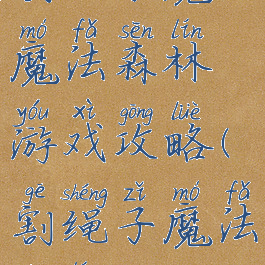 mó fǎ sēn lín
魔法森林
yóu xì gōng lüè
游戏攻略(
gē shéng zǐ mó fǎ
割绳子魔法